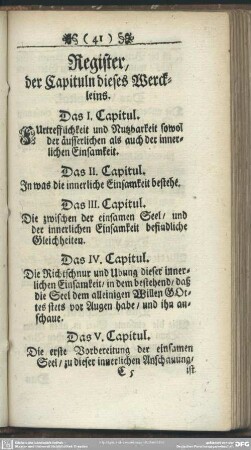 ( 41 )
Register,
der Capituln dieses Werck-
leins.
Das I. Capitul.
Fürtrefflichkeit und Nutzbarkeit sowol
der äusserlichen als auch der inner-
lichen Einsamkeit.
Das II. Capitul.
In was die innerliche Einsamkeit bestehe.
Das III. Capitul.
Die zwischen der einsamen Seel / und
der innerlichen Einsamkeit befindliche
Gleichheiten.
Das IV. Capitul.
Die Richtschnur und Ubung dieser inner-
lichen Einsamkeit / in dem bestehend / daß
die Seel dem alleinigen Willen GOt-
tes stets vor Augen habe / und ihn an-
schaue.
Das V. Capitul.
Die erste Vorbereitung der einsamen
Seel / zu dieser innerlichen Anschauung /
C 5 ist